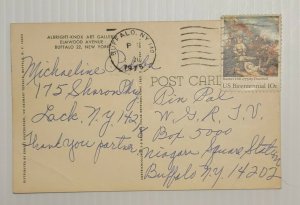 ALBRIGHT-KNOX ART GALLERY
ELMWOOD AVENUE
BUFFALO 22, NEW YORK
BUFFALO, N.Y.
PM
1975
US Bicentennial 10c
POST CARD
Michaeline
175 Sharon Pky
Lack. N.Y. 14218
Thank you partner,
Pin Pal
W.G.R. T.V.
Box 5000
Niagara Square Station
Buffalo N.Y. 14202